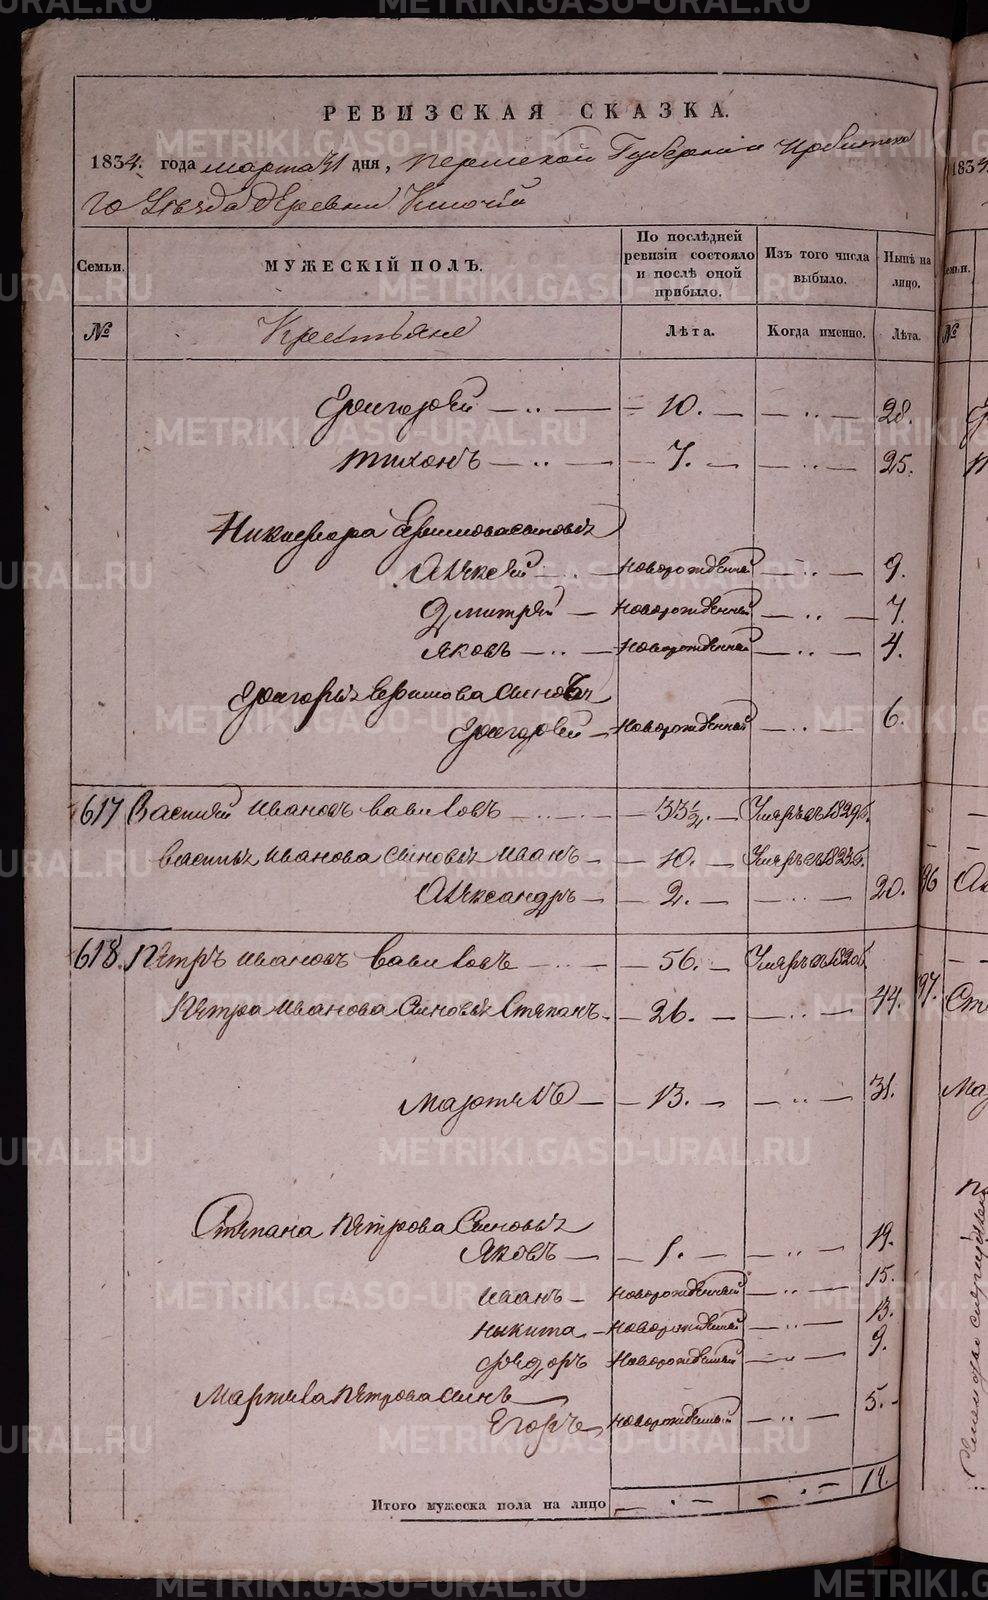 РЕВИЗСКАЯ СКАЗКА.
1834. года марта 31 дня, Пермской Губернии Ирбитска
го Уѣзда деревни Ключи
Семьи. МУЖЕСКІЙ ПОЛЪ. По послѣдней ревизіи состояло и послѣ оной прибыло. Изъ того числа выбыло. Нынѣ на лицо.
№ Крестьяне Лѣта. Когда именно. Лѣта.
Григорей — 10. — 28.
Тихонъ — 7. — 25.
Никифора Ефимова сыновья
Алексей — новорожденной — 9.
Дмитрей — новорожденной — 7.
Яковъ — новорожденной — 4.
Григорья Ефимова сыновья
Григорей — новорожденной — 6.
617 Василей Ивановъ Вавиловъ — 33½. — Умеръ въ 1829г.
Василья Иванова сыновья Иванъ — 10. — Умеръ въ
Александръ — 2. — 20.
618. Петръ Ивановъ Вавиловъ — 56. — Умеръ въ
Петра Иванова сыновья Степанъ — 26. — 44.
Мартынъ — 13. — 31.
Степана Петрова сыновья
Яковъ — 1. — 19.
Иванъ — новорожденный — 15.
Никита — новорожденный — 13.
Федоръ новорожденный — 9.
Петрова сынъ
Егоръ новорожденный — 5.
Итого мужеска пола на лицо — 14.